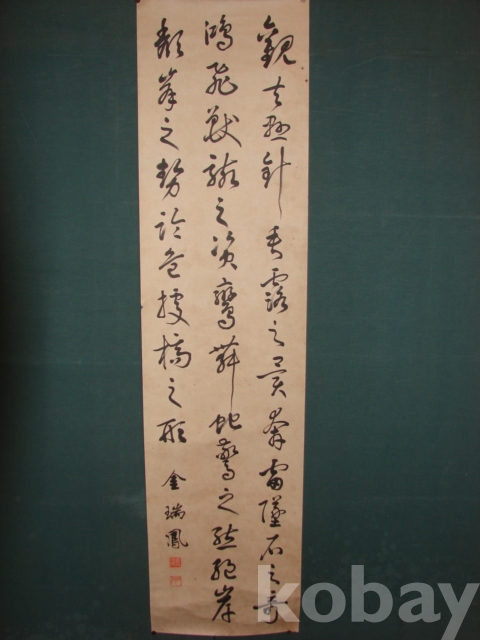 觀夫懸針垂露之異奔雷墜石之奇
鴻飛獸駭之資鸞舞蛇驚之態絕岸
頽峯之勢臨危據槁之形
金瑞鳳
kobay